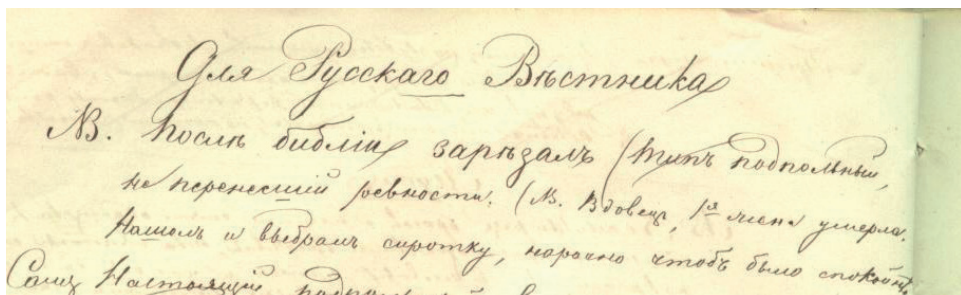 Для Русскаго Вѣстника
NB. Послѣ библіи зарѣзалъ (Типъ подпольный,
не перенесшій ревности. (NB. Вдовец, 1я жена умерла.
Нашолъ и выбралъ сиротку, нарочно чтобъ было спокойнѣе.
Самъ Настоящій